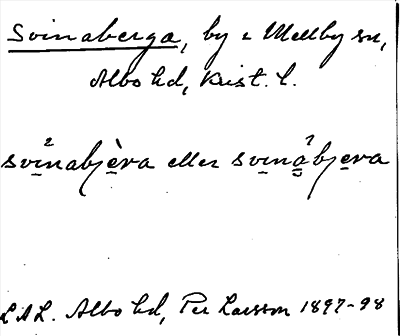 Svinaberga, by i Mellby sn,
Albo hd, Krist. l.
svinabjèra eller svinabjera
L.A.L. Albo hd, Per Larsson 1897-98